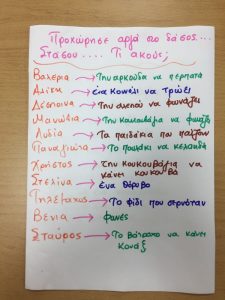 Προχώρησε αργά στο δάσος...
Στάσου..... Τι ακούς;
Βαλέρια → Την αρκούδα να περπατά
Αλίκη → ένα κουνέλι να τρώει
Δέσποινα → Την αλεπού να φωνάζει
Μανώλια → Την να φωνάζει
Λυδία → Τα παιδάκια που παίζουν
Παναγιώτα → Το πουλάκι να κελαηδά
Χρήστος → Την κουκουβάγια να
κάνει κουκουβά
Στελίνα → ένα θόρυβο
Τηλέμαχος → Το φίδι που σερνόταν
Βένια → φωνές
Σταύρος → Το βάτραχο να κάνει
κουάξ